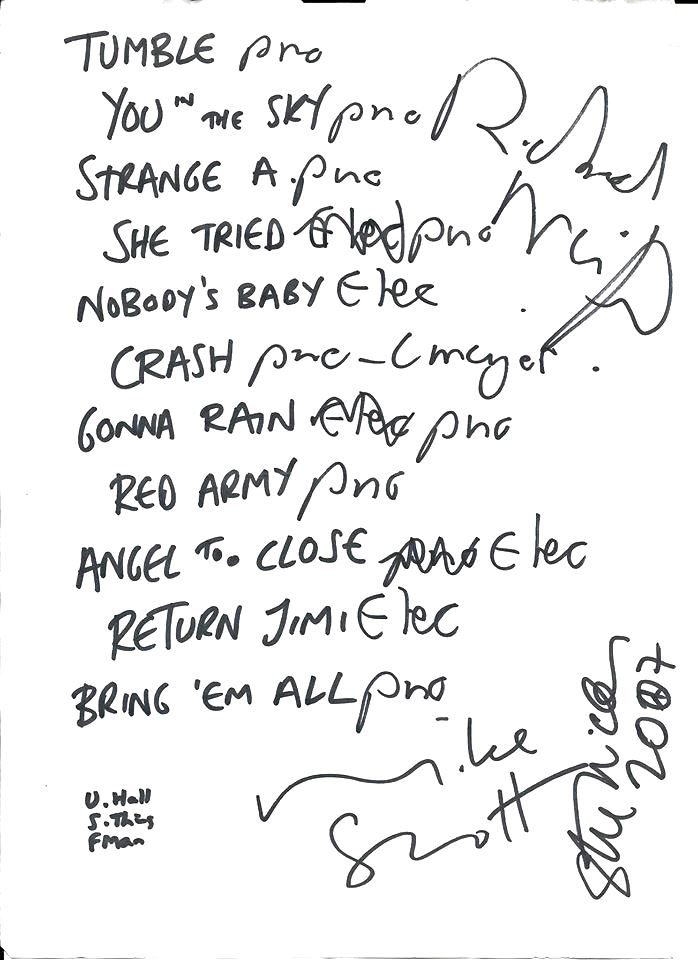 TUMBLE pno
YOU IN THE SKY pno
STRANGE A. pno
SHE TRIED pno
NOBODY'S BABY Elec
CRASH pno - Cmeyer.
GONNA RAIN pno
RED ARMY pno
ANGEL TO. CLOSE Elec
RETURN JIMI Elec
BRING 'EM ALL pno
Richard
Mike
Scott
2007
U. Hall
S. Thing
F Man